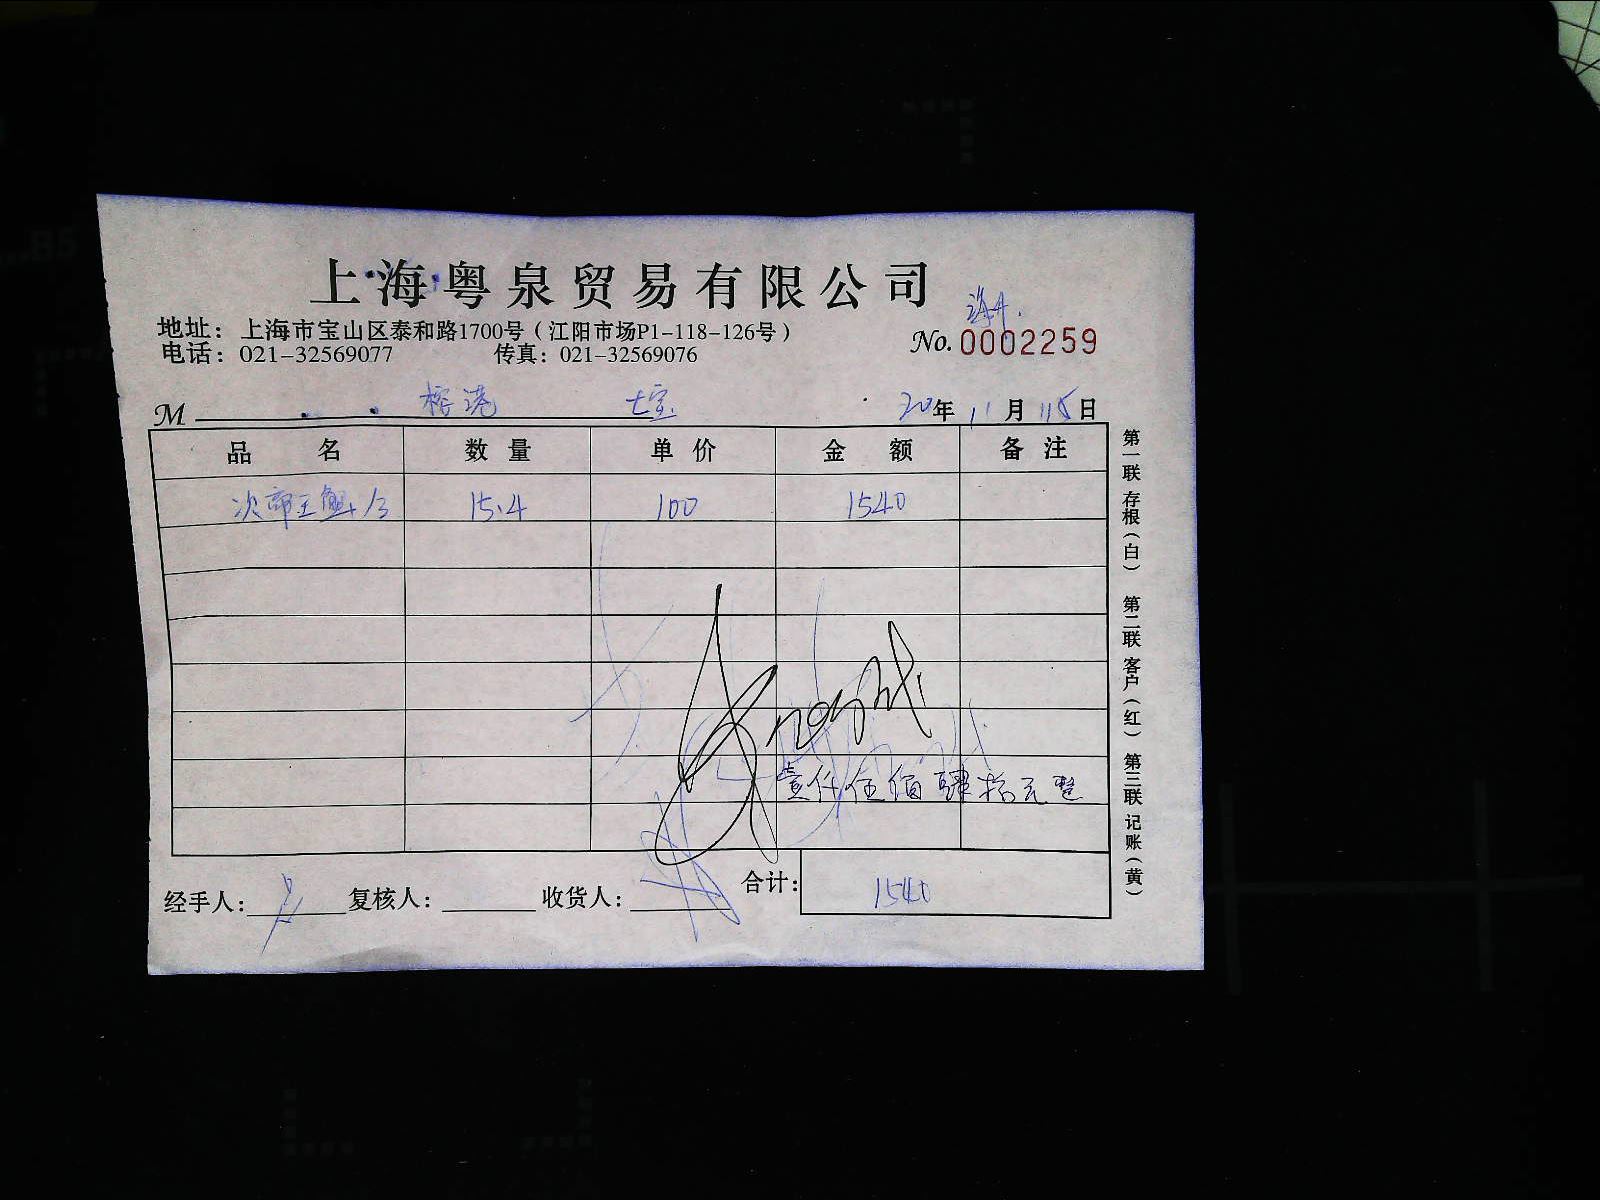 上海粤泉贸易有限公司
地址：上海市宝山区泰和路1700号（江阳市场P1-118-126号）
No.0002259
电话：021-32569077 传真：021-32569076
M 港 七宝 20年11月15日
品名 数量 单价 金额 备注
15.4 100 1540
壹仟伍佰肆拾元整
经手人： 复核人： 收货人： 合计：1540
第一联 存根（白） 第二联 客户（红） 第三联 记账（黄）